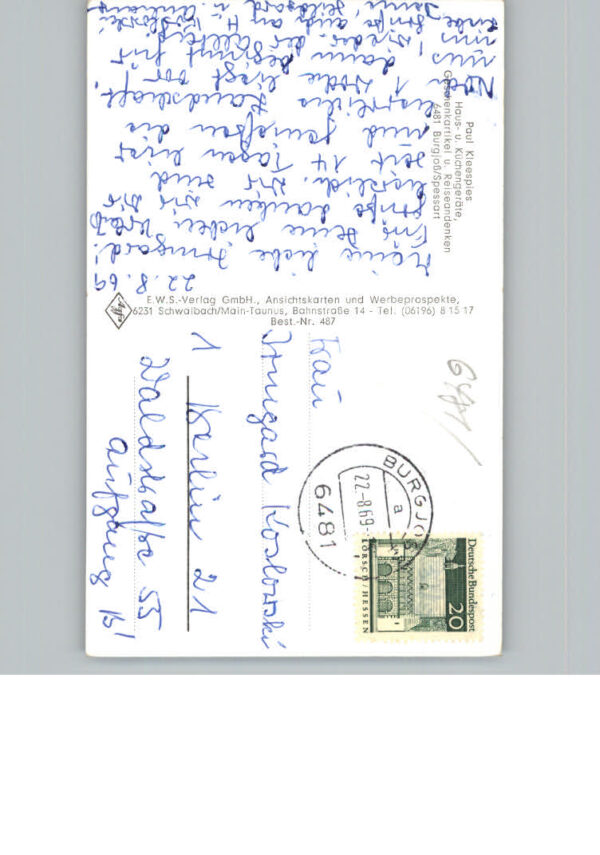 Paul Kleespies
Haus- u. Küchengeräte,
Geschenkartikel u. Reiseandenken
6481 Burgjoß/Spessart
22.8.69
Meine liebe Irmgard!
Für Deine lieben
Grüße danken wir
herzlich. Wir sind
seit 14 Tagen hier
und genießen die
herrliche Landschaft.
1 Woche liegt vor
uns, dann beginnt für
uns wieder der Alltag.
E.W.S.-Verlag GmbH., Ansichtskarten und Werbeprospekte,
6231 Schwalbach/Main-Taunus, Bahnstraße 14 - Tel. (06196) 8 15 17
Best.-Nr. 487
Agfa
Frau
Irmgard Koslowski
1 Berlin 21
Waldstraße 55
Aufgang B/
6481
BURGJOSS
a
22-8.69
6481
Deutsche Bundespost
20
LORSCH/HESSEN